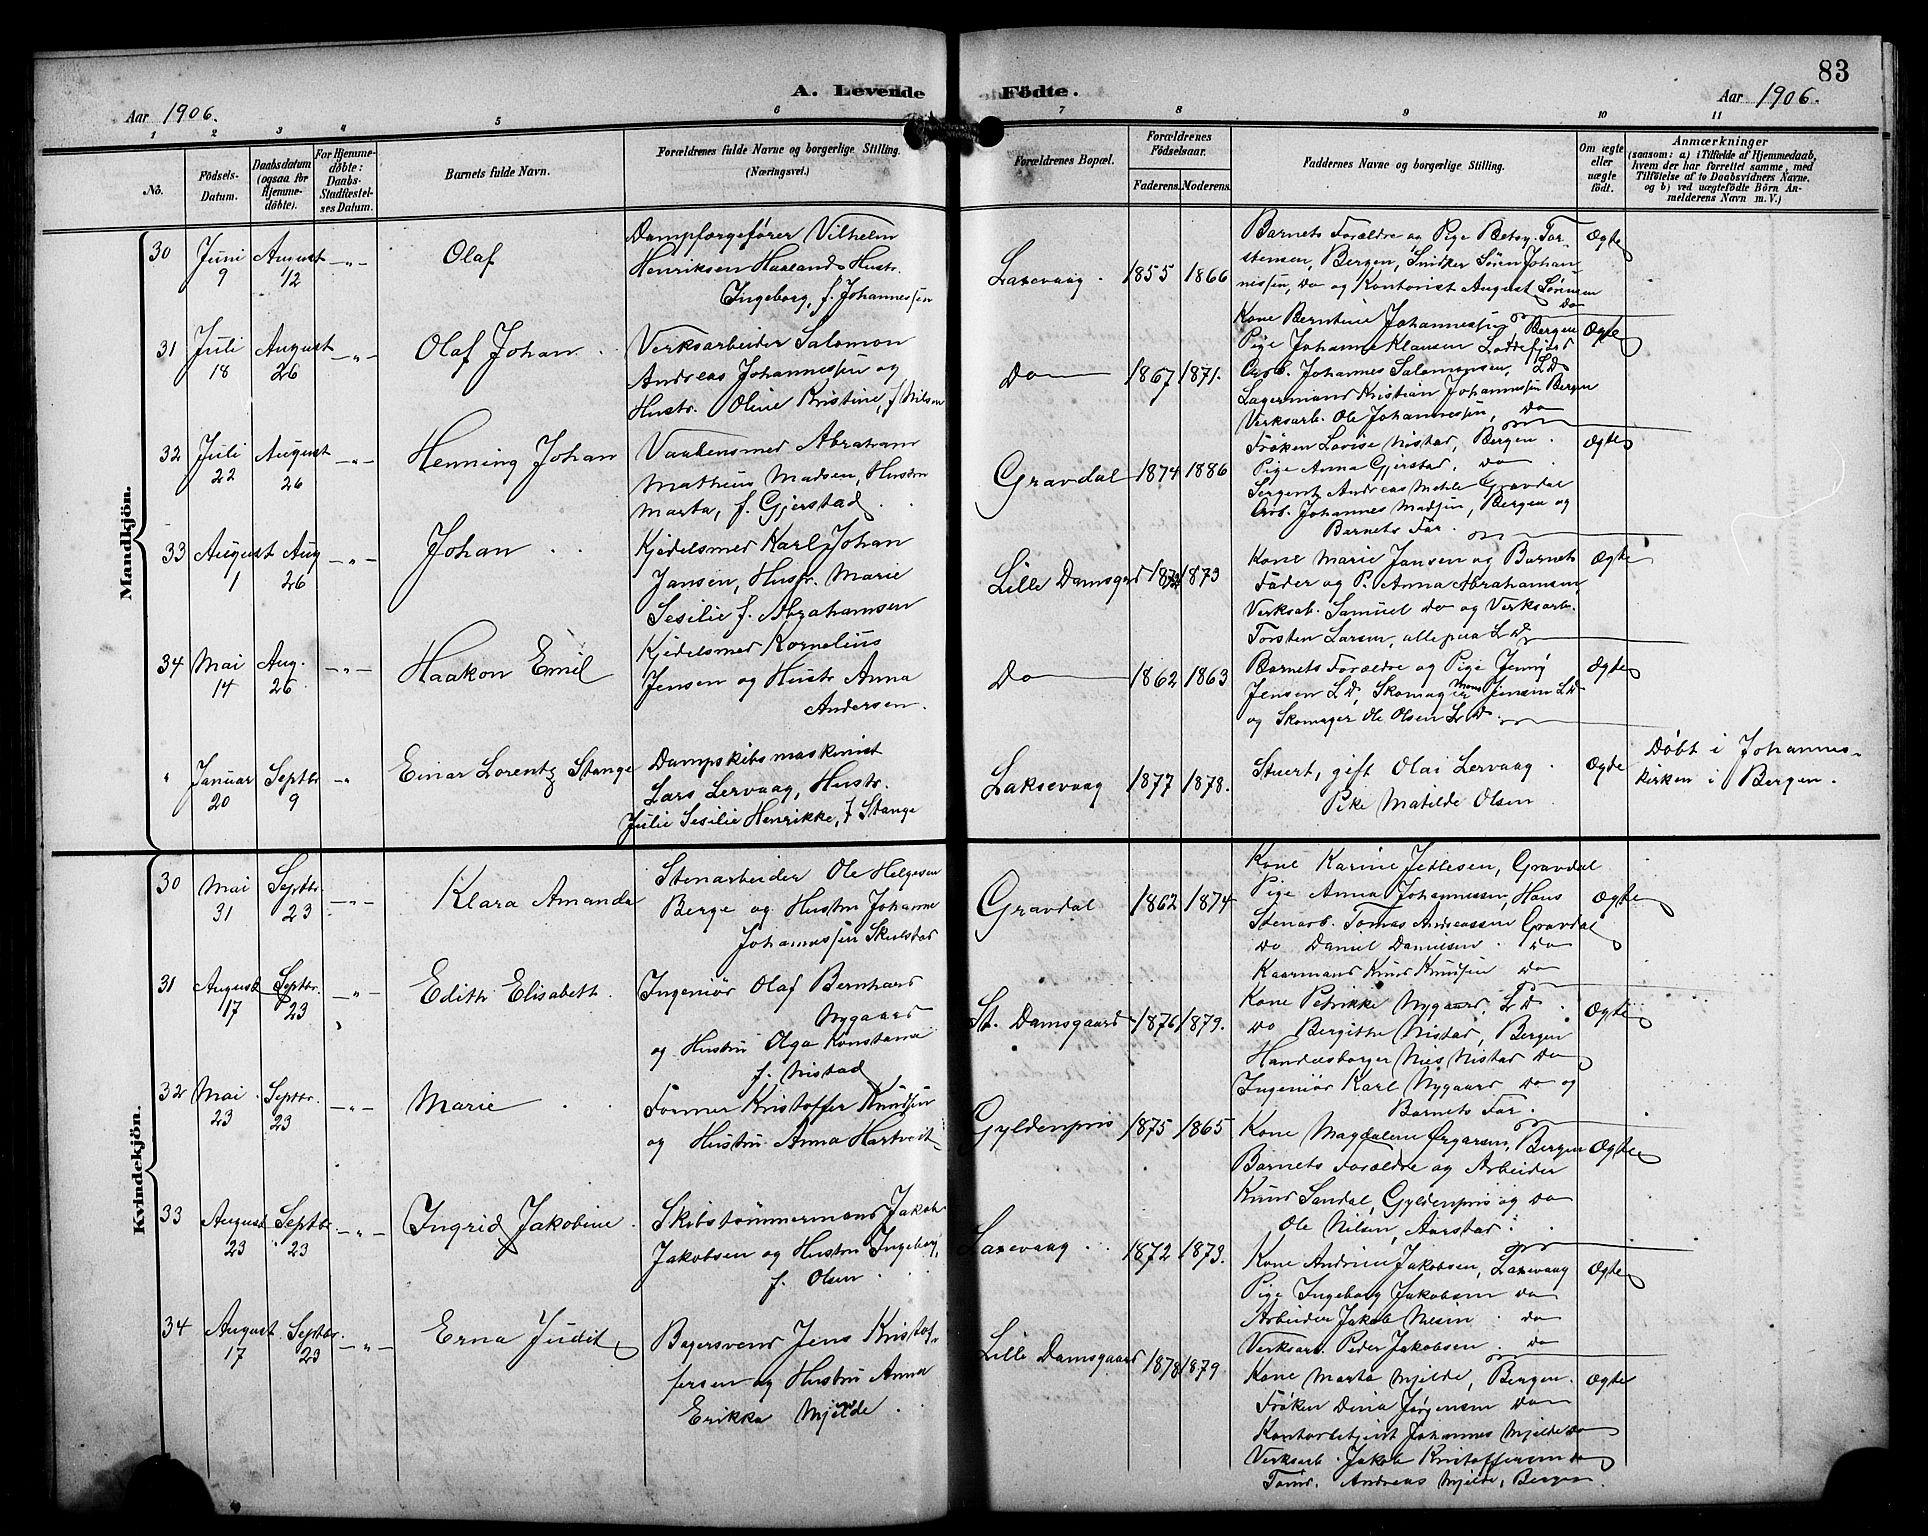 83
A. Levende Födte.
Aar 1906.
Aar 1906.
1 2 3 4 5 6 7 8 9 10 11
No.
Födsels-Datum.
Daabsdatum (ogsaa for Hjemme-döbte).
For Hjemme-döbte: Daabs-Stadfæstel-ses Datum.
Barnets fulde Navn.
Forældrenes fulde Navne og borgerlige Stilling. (Næringsvei.)
Forældrenes Bopæl.
Forældrenes Födselsaar.
Faderens. Moderens.
Faddernes Navne og borgerlige Stilling.
Om ægte eller uægte födt.
Anmærkninger
(saasom: a) i Tilfælde af Hjemmedaab,
hvem der har forrettet samme, med
Tilföielse af to Daabsvidners Navne.
og b) ved uægtefödte Börn An-
melderens Navn m. V.)
Mandkjön.
30 Juni 9 August 12 -"- Olaf
Dampfærgefører Vilhelm
Henriksen Haaland Hustr.
Ingeborg, f. Johannessen
Laxevaag. 1855 1866
Barnets Forældre og Pige Betsy Tor-
stensen, Bergen, Snidker Sören Johan-
nessen, do og Kontorist August Sørensen
do
Ægte
31 Juli 18 August 26 -"- Olaf Johan
Verksarbeider Salomon
Andreas Johannessen og
Hustr. Oline Kristine, f Nilsen
Do 1867 1871.
Kone Berntine Johannessen, Bergen
Pige Johanne Klausen Loddefjord
Arb. Johannes Salomonsen, LD
Lagermand Kristian Johannessen Bergen
Verksarb. Ole Johannessen, do
Ægte
32 Juli 22 August 26 -"- Henning Johan
Vaabensmed Abraham
Matheus Madsen, Hustru
Marta, f. Gjerstad.
Gravdal 1874 1886
Frøken Lovise Nistad, Bergen.
Pige Anna Gjerstad, do
Sergent Andreas Mehle Gravdal
Arb. Johannes Madsen, Bergen og
Barnets Far.
Ægte
33 August 1 Aug 26 -"- Johan
Kjedelsmed Karl Johan
Jansen, Hustr. Marie
Sesilie f. Abrahamsen
Lille Damsgard 1873
Kone Marie Jansen og Barnets
Fader og P. Anna Abrahamsen,
Verksab. Samuel do og Verksarb.
Torsten Larsen, alle paa LD
Ægte
34 Mai 14 Aug. 26 -"- Haakon Emil
Kjedelsmed Kornelius
Jensen og Hustr Anna
Andersen.
Do 1862 1863
Barnets Forældre og Pige Jenny
Jensen LD, Skomager Mons Jensen LD
og Skomager Ole Olsen LD.
Ægte
" Januar 20 Septbr 9 -"- Einar Lorentz Stange
Dampskibsmaskinist
Lars Lervaag, Hustr.
Julie Sesilie Henrikke, f Stange
Laksevaag 1877 1878.
Stuert, gift Olai Lervaag.
Pike Matilde Olsen
Ægte
Døbt i Johannes-
kirken i Bergen.
Kvindekjön.
30 Mai 31 Septbr. 23 -"- Klara Amanda
Stenarbeider Ole Helgesen
Berge og Hustru Johanne
Johannessen Skulstad
Gravdal 1862 1874
Kone Karine Jetlesen, Gravdal
Pige Anna Johannessen, Hans
Stenarb. Tomas Andreassen Gravdal
do Daniel Danielsen. do
Kaarmand Knud Knudsen do
Ægte
31 August 17 Septbr. 23 -"- Edith Elisabeth.
Ingeniør Olaf Bernhard
Nygaard
og Hustru Olga Konstanse
f. Nistad
St. Damsgaard 1876 1879.
Kone Petrikke Nygaard, LD.
do Bergitte Nistad, Bergen
Handelsborger Nils Nistad do
Ingeniør Karl Nygaard do og
Barnets Far.
Ægte
32 Mai. 23 Septbr. 23 -"- Marie
Former Kristoffer Knudsen
og Hustru Anna Hartveit
Gyldenpris 1875 1865
Kone Magdalene Ørgarsen, Bergen
Barnets Forældre og Arbeider
Knud Sandal, Gyldenpris og do
Ole Nilsen, Aarstad.
Ægte
33 August 23 Septbr. 23 -"- Ingrid Jakobine.
Skibstømmermand Jakob
Jakobsen og Hustru Ingeborg,
f. Olsen.
Laxevaag 1872 1873.
Kone Andrine Jakobsen, Laxevaag
Pige Ingeborg Jakobsen do
Arbeider Jakob Nilsen. do
Verksarb. Peder Jakobsen. do
Ægte
34 August 17 Septbr. 23 -"- Erna Judit
Bagersvend Jens Kristof-
fersen og Hustru Anna
Erikka Mjelde.
Lille Damsgaard 1878 1879
Kone Marta Mjelde, Bergen.
Frøken Dina Jørgensen do
Kontorbetjent Johannes Mjelde do
Verksarb. Jakob Kristoffersen do
Tømd. Andreas Mjelde, Bergen
Ægte